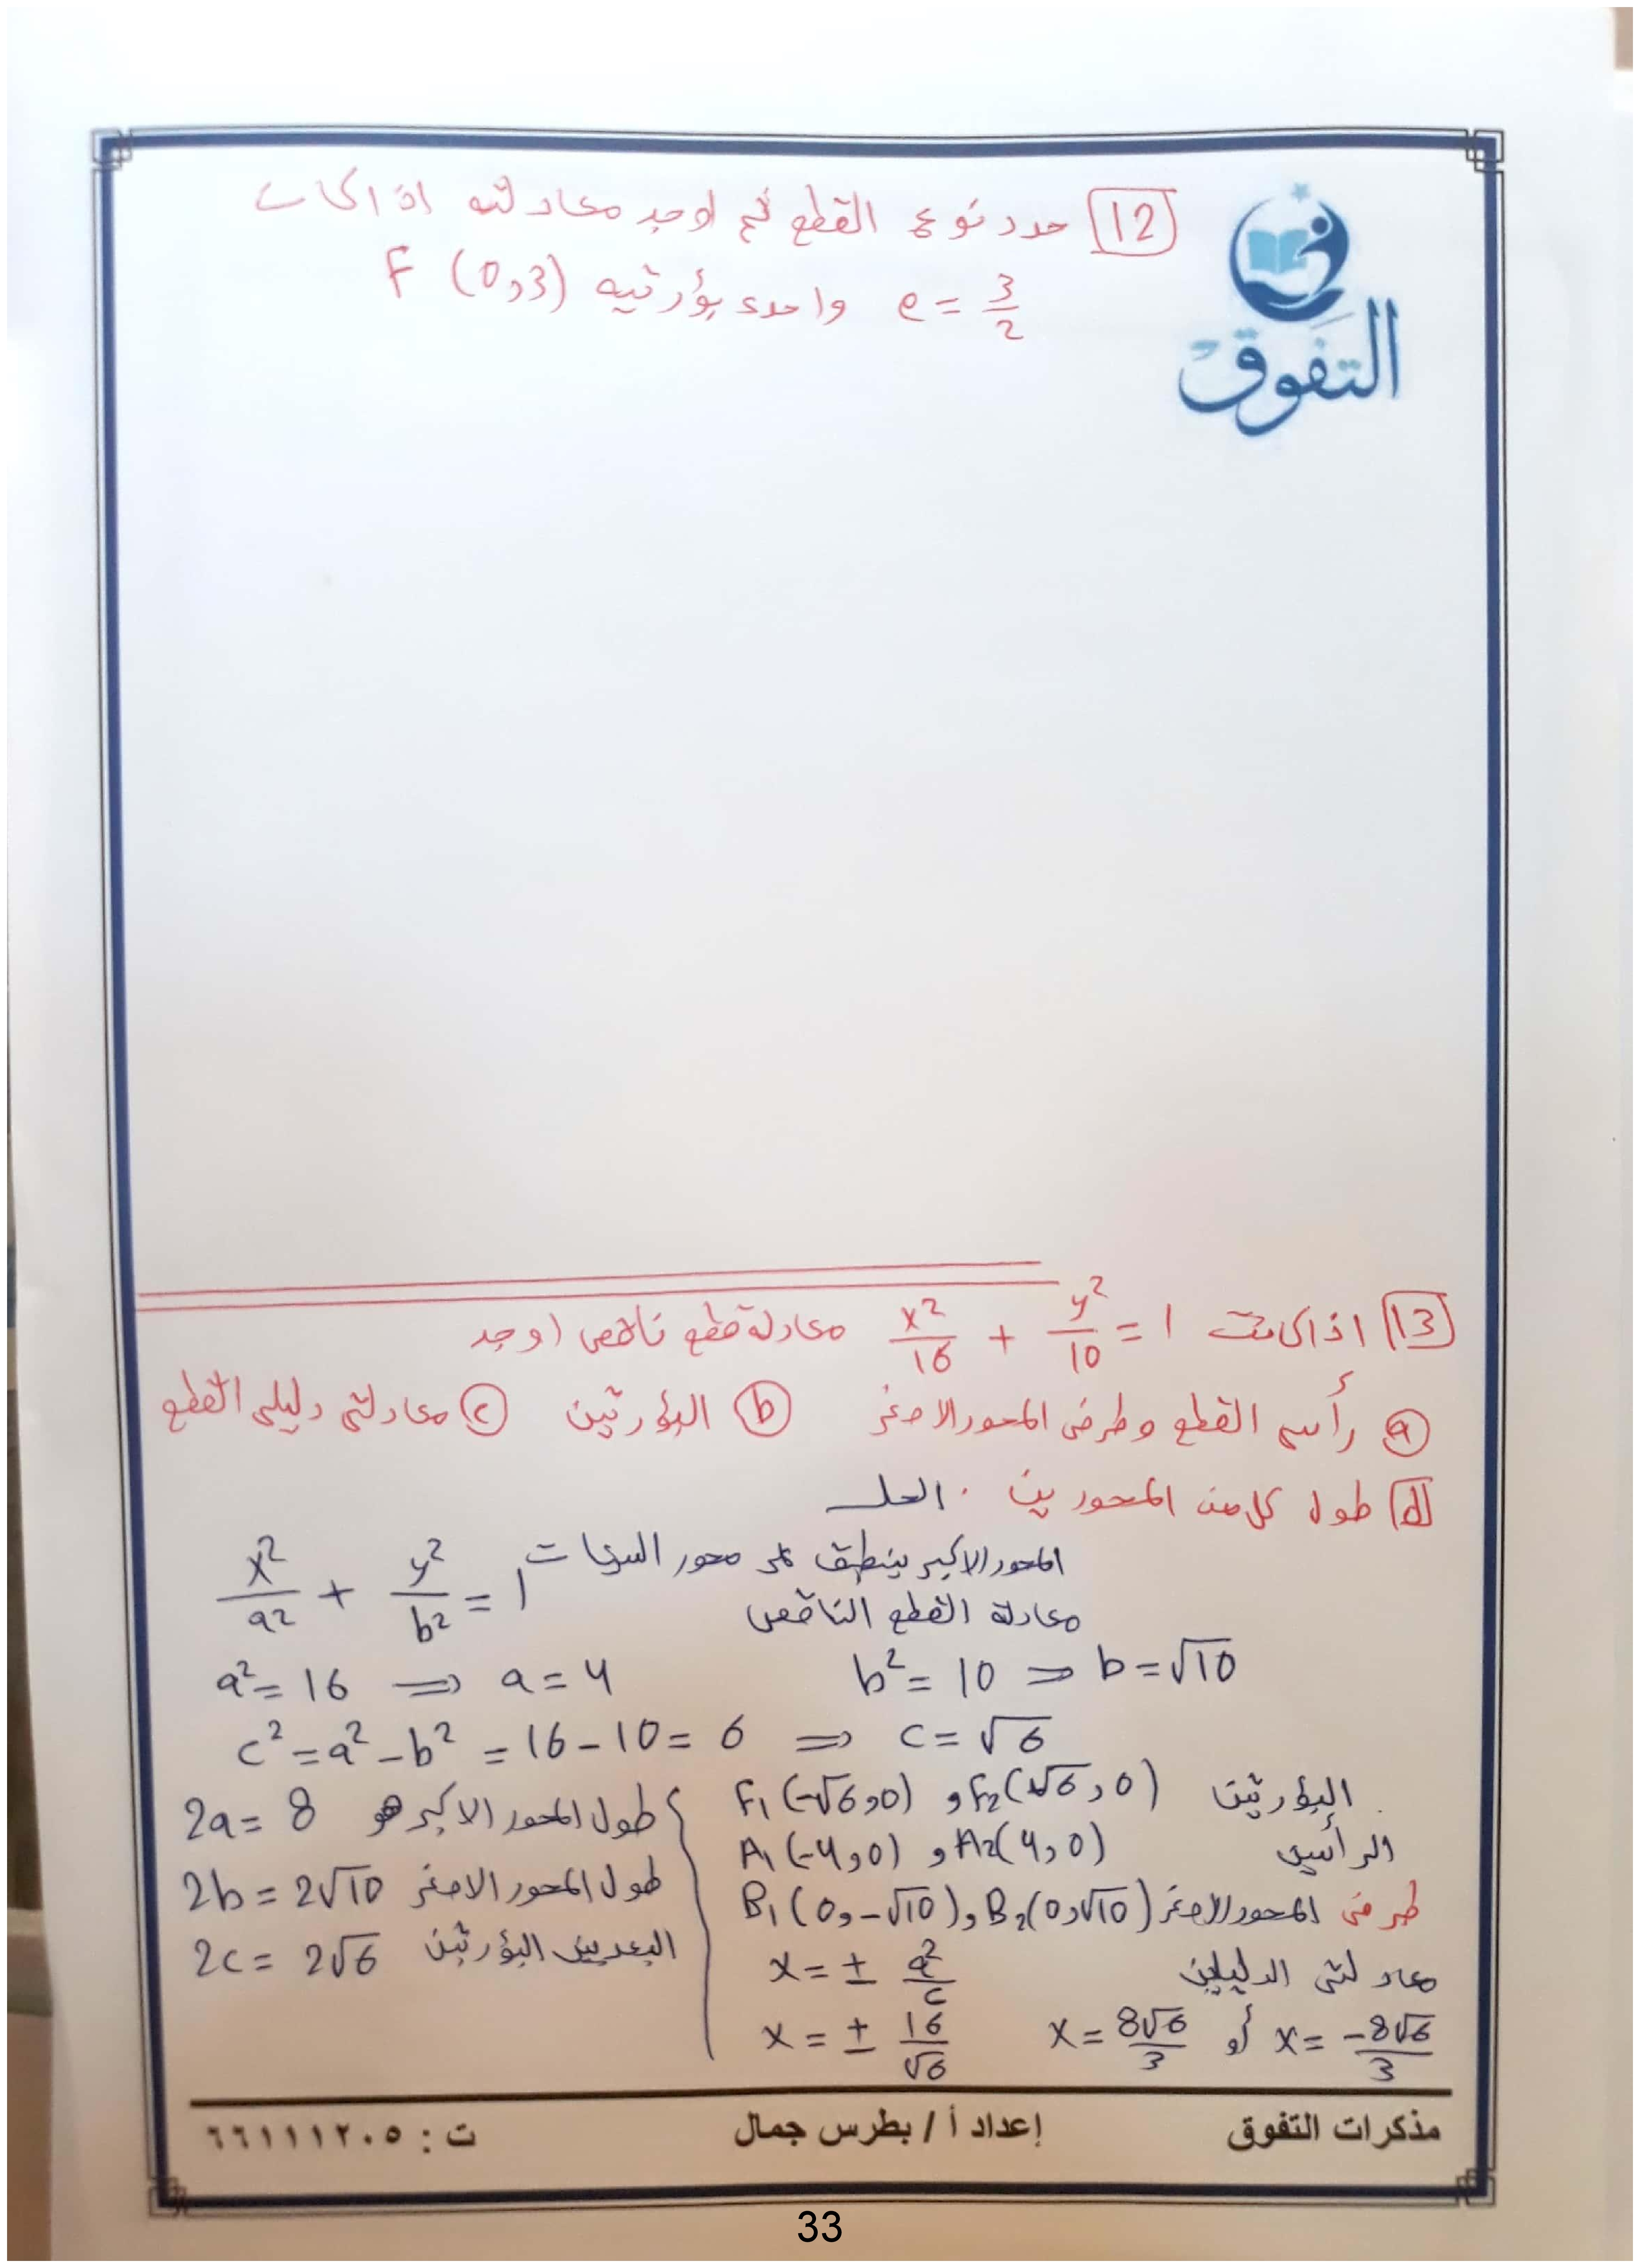 التفوق
12 حدد نوع القطع ثم اوجد معادلته اذا كانت
e = 3/2 واحدى بؤرتيه F (0,3)
13 اذا كانت x²/16 + y²/10 = 1 معادلة قطع ناقص اوجد
a رأسى القطع وطرفى المحور الاصغر b البؤرتين c معادلتى دليلى القطع
d طول كل من المحورين . الحل
المحور الاكبر ينطبق على محور السينات
معادلة القطع الناقص x²/a² + y²/b² = 1
a² = 16 ⇒ a = 4 b² = 10 ⇒ b = √10
c² = a² - b² = 16 - 10 = 6 ⇒ c = √6
البؤرتين F₁ (-√6,0) و F₂ (√6,0)
الرأسين A₁ (-4,0) و A₂ (4,0)
طرفى المحور الاصغر B₁ (0,-√10), B₂ (0,√10)
معادلتى الدليلين x = ± a²/c
x = ± 16/√6 x = 8√6/3 أو x = -8√6/3
طول المحور الاكبر هو 2a = 8
طول المحور الاصغر 2b = 2√10
البعد بين البؤرتين 2c = 2√6
مذكرات التفوق إعداد أ / بطرس جمال ت : ٦٦١١١٢٠٥
33